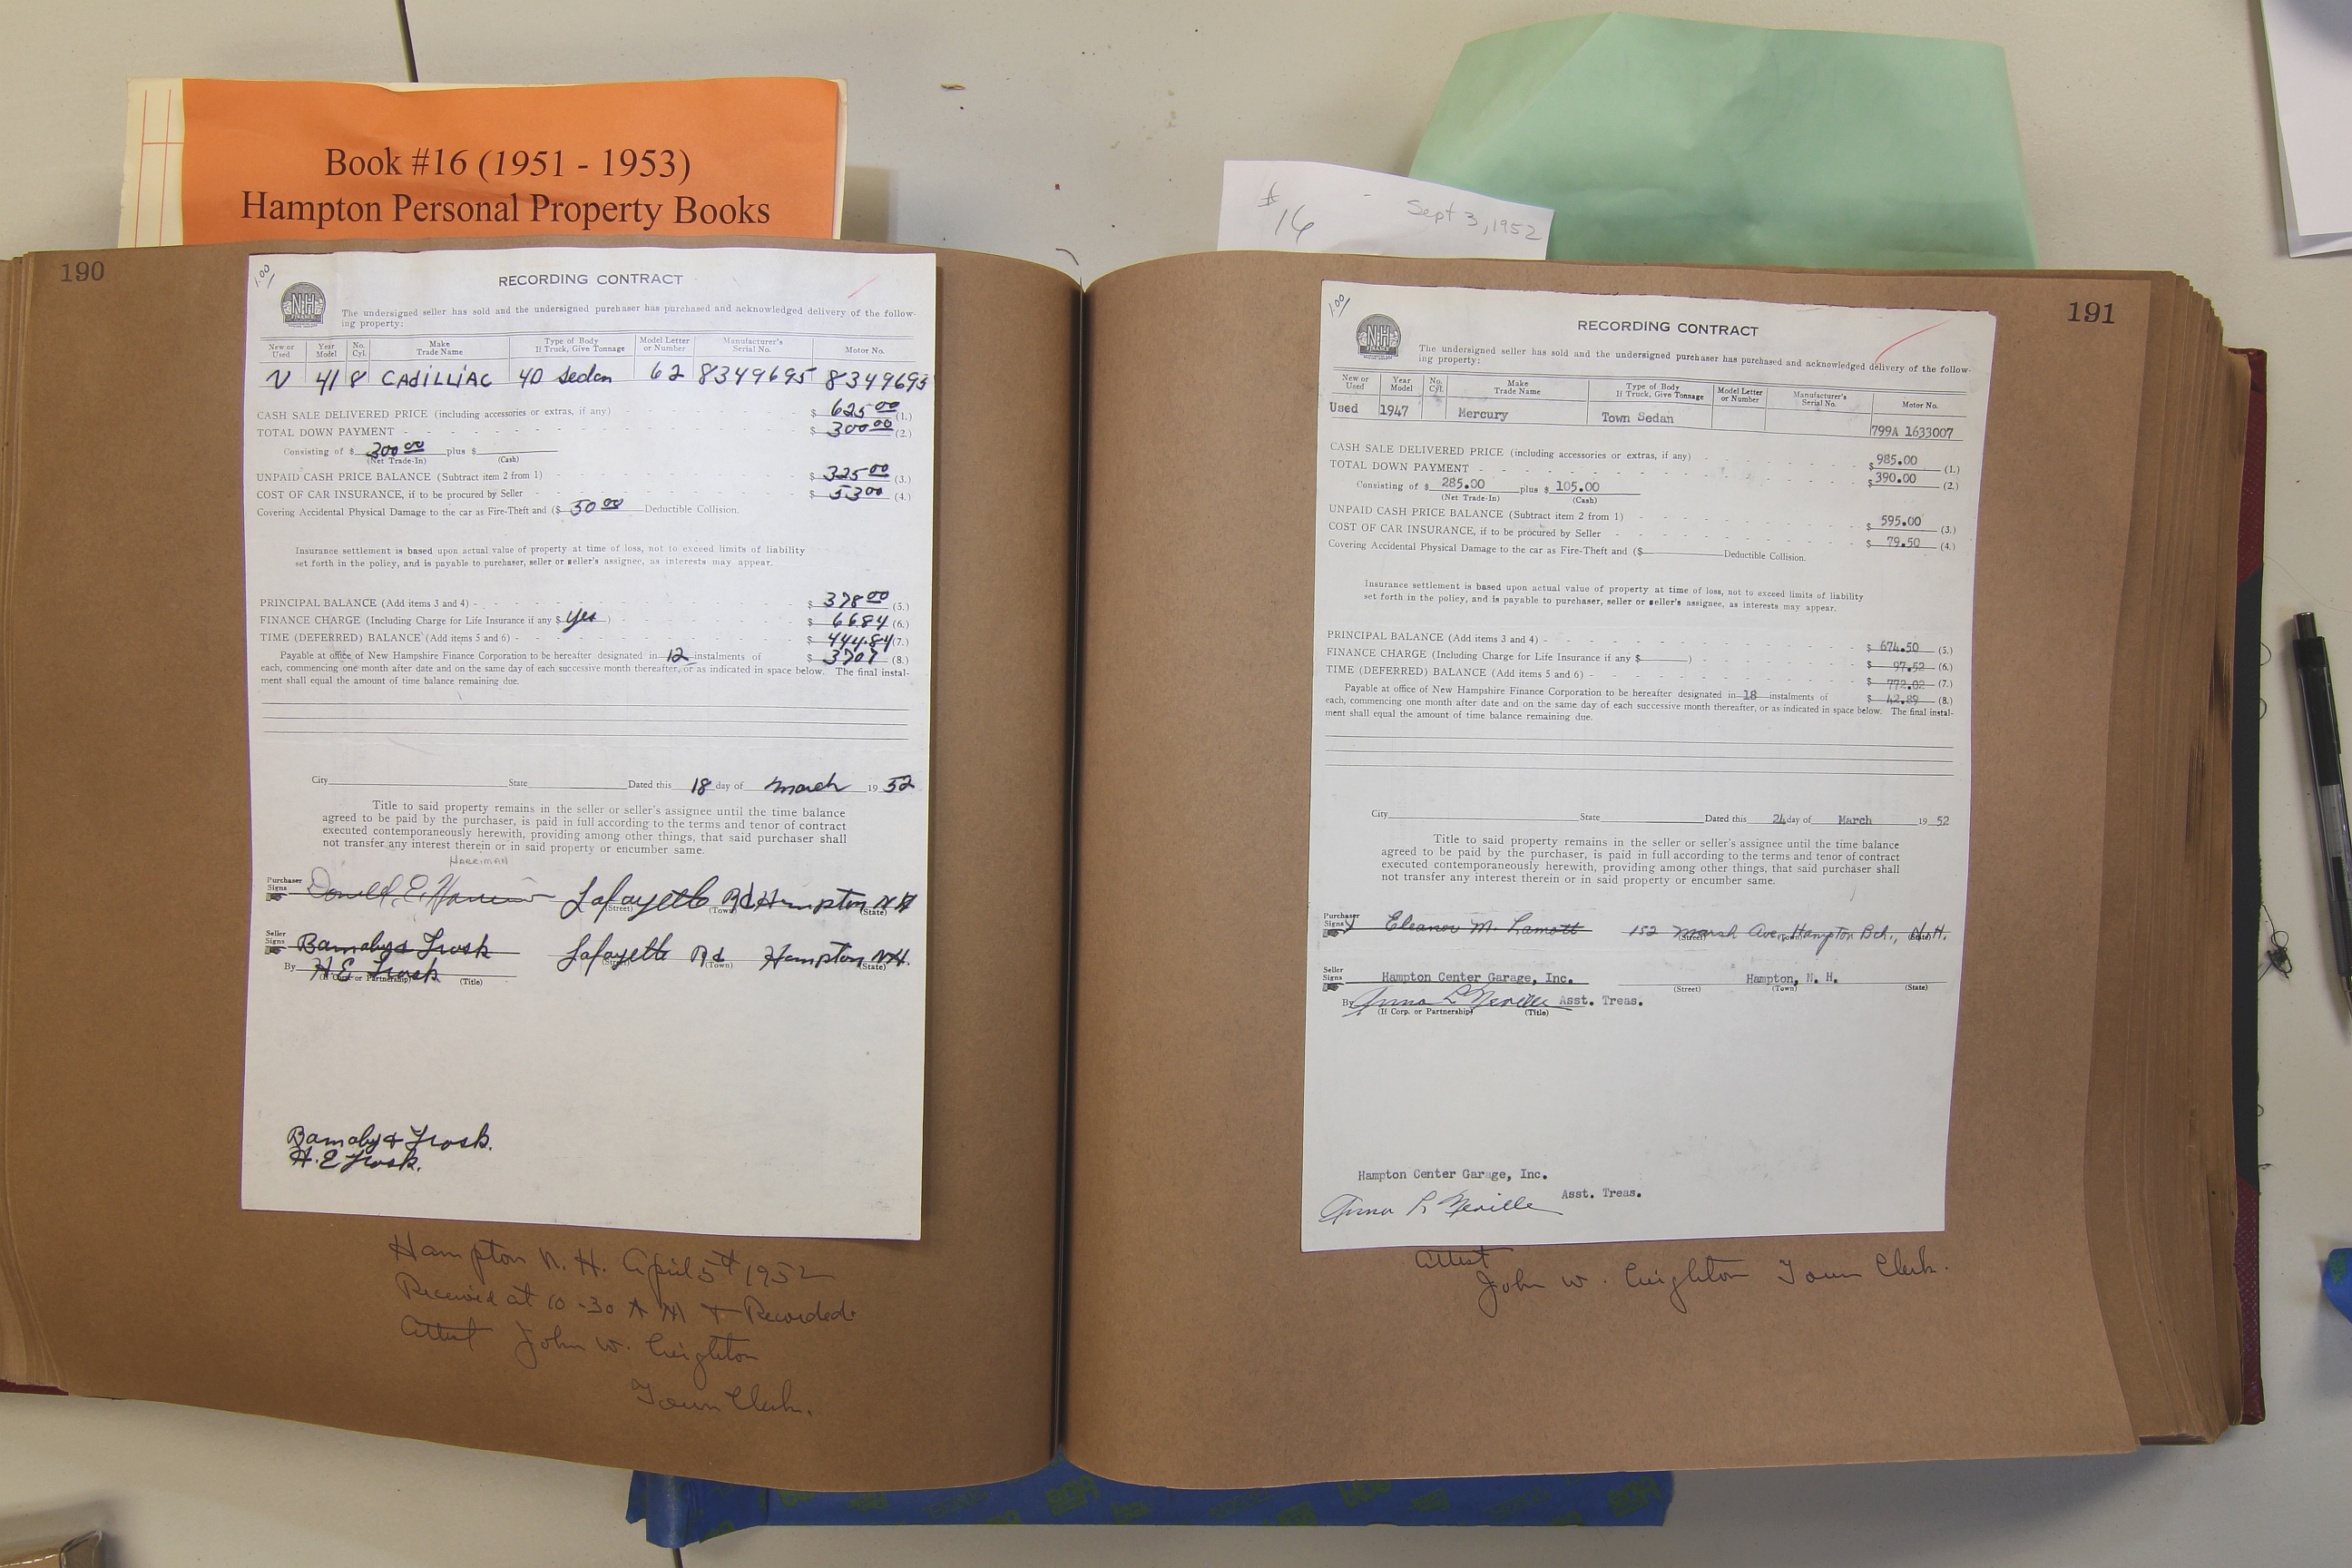 Book #16 (1951 - 1953)
Hampton Personal Property Books
#16 - Sept 3, 1952
190
1.00/
RECORDING CONTRACT
N-H
FINANCE
The undersigned seller has sold and the undersigned purchaser has purchased and acknowledged delivery of the follow-
ing property:
New or Used Year Model No. Cyl. Make Trade Name Type of Body If Truck, Give Tonnage Model Letter or Number Manufacturer's Serial No. Motor No.
41 8 CAdiLLiAC 40 Sedan 62 8349695 8349695
CASH SALE DELIVERED PRICE (including accessories or extras, if any) $ 625 00 (1.)
TOTAL DOWN PAYMENT $ 300 00 (2.)
Consisting of $ 300 00 plus $
(Net Trade-In) (Cash)
UNPAID CASH PRICE BALANCE (Subtract item 2 from 1) $ 325 00 (3.)
COST OF CAR INSURANCE, if to be procured by Seller $ 53 00 (4.)
Covering Accidental Physical Damage to the car as Fire-Theft and ($ 50 00 Deductible Collision.
Insurance settlement is based upon actual value of property at time of loss, not to exceed limits of liability
set forth in the policy, and is payable to purchaser, seller or seller's assignee, as interests may appear.
PRINCIPAL BALANCE (Add items 3 and 4) $ 378 00 (5.)
FINANCE CHARGE (Including Charge for Life Insurance if any $ yes ) $ 66 84 (6.)
TIME (DEFERRED) BALANCE (Add items 5 and 6) $ 444.84 (7.)
Payable at office of New Hampshire Finance Corporation to be hereafter designated in 12 instalments of $ 37 07 (8.)
each, commencing one month after date and on the same day of each successive month thereafter, or as indicated in space below. The final instal-
ment shall equal the amount of time balance remaining due.
City State Dated this 18 day of March 19 52
Title to said property remains in the seller or seller's assignee until the time balance
agreed to be paid by the purchaser, is paid in full according to the terms and tenor of contract
executed contemporaneously herewith, providing among other things, that said purchaser shall
not transfer any interest therein or in said property or encumber same.
HARRIMAN
Purchaser Signs Donald E. Harriman Lafayette Rd Hampton NH
(Street) (Town) (State)
Seller Signs Barnaby & Trosk Lafayette Rd Hampton N.H.
(Street) (Town) (State)
By H E Trosk
(If Corp. or Partnership) (Title)
Barnaby & Trosk.
H. E Trosk.
Hampton N. H. April 5th 1952
Received at 10-30 A M & Recorded.
Attest John W. Creighton
Town Clerk.
191
1.00/
RECORDING CONTRACT
N-H
FINANCE
The undersigned seller has sold and the undersigned purchaser has purchased and acknowledged delivery of the follow-
ing property:
New or Used Year Model No. Cyl. Make Trade Name Type of Body If Truck, Give Tonnage Model Letter or Number Manufacturer's Serial No. Motor No.
Used 1947 Mercury Town Sedan 799A 1633007
CASH SALE DELIVERED PRICE (including accessories or extras, if any) $ 985.00 (1.)
TOTAL DOWN PAYMENT $ 390.00 (2.)
Consisting of $ 285.00 plus $ 105.00
(Net Trade-In) (Cash)
UNPAID CASH PRICE BALANCE (Subtract item 2 from 1) $ 595.00 (3.)
COST OF CAR INSURANCE, if to be procured by Seller $ 79.50 (4.)
Covering Accidental Physical Damage to the car as Fire-Theft and ($ Deductible Collision.
Insurance settlement is based upon actual value of property at time of loss, not to exceed limits of liability
set forth in the policy, and is payable to purchaser, seller or seller's assignee, as interests may appear.
PRINCIPAL BALANCE (Add items 3 and 4) $ 674.50 (5.)
FINANCE CHARGE (Including Charge for Life Insurance if any $ ) $ 97.52 (6.)
TIME (DEFERRED) BALANCE (Add items 5 and 6) $ 772.02 (7.)
Payable at office of New Hampshire Finance Corporation to be hereafter designated in 18 instalments of $ 42.89 (8.)
each, commencing one month after date and on the same day of each successive month thereafter, or as indicated in space below. The final instal-
ment shall equal the amount of time balance remaining due.
City State Dated this 24 day of March 19 52
Title to said property remains in the seller or seller's assignee until the time balance
agreed to be paid by the purchaser, is paid in full according to the terms and tenor of contract
executed contemporaneously herewith, providing among other things, that said purchaser shall
not transfer any interest therein or in said property or encumber same.
Purchaser Signs Eleanor M. Lamott 152 Marsh Ave, Hampton Bch., N.H.
(Street) (Town) (State)
Seller Signs Hampton Center Garage, Inc. Hampton, N. H.
(Street) (Town) (State)
By Anna L Neville Asst. Treas.
(If Corp. or Partnership) (Title)
Hampton Center Garage, Inc.
Asst. Treas.
Anna L Neville
Attest
John W. Creighton Town Clerk.